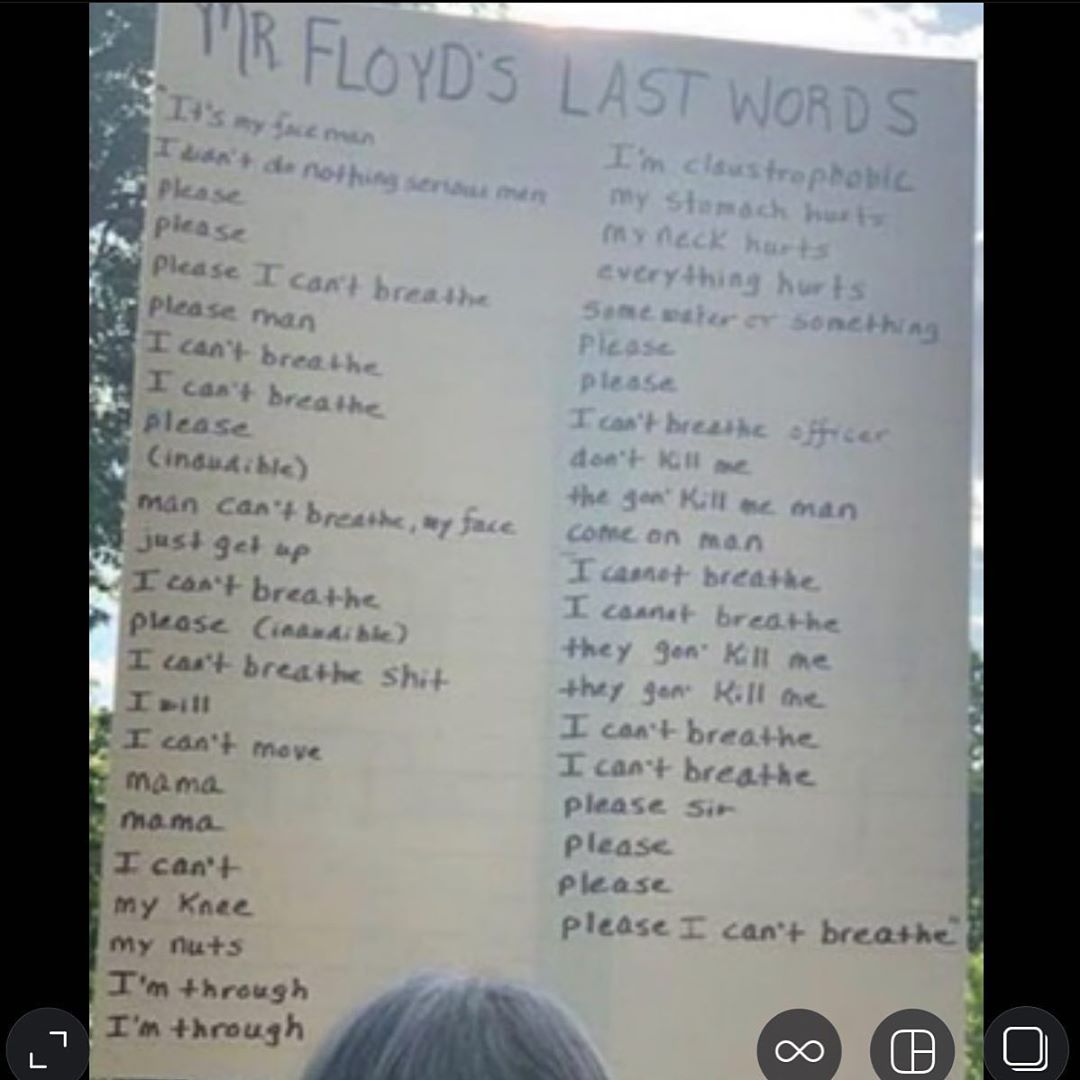 MR FLOYD'S LAST WORDS
"It's my face man
I didn't do nothing serious man
please
please
please I can't breathe
please man
I can't breathe
I can't breathe
please
(inaudible)
man can't breathe, my face
just get up
I can't breathe
please (inaudible)
I can't breathe shit
I will
I can't move
mama
mama
I can't
my knee
my nuts
I'm through
I'm through
I'm claustrophobic
my stomach hurts
my neck hurts
everything hurts
some water or something
please
please
I can't breathe officer
don't kill me
the gon' kill me man
come on man
I cannot breathe
I cannot breathe
they gon' kill me
they gon' kill me
I can't breathe
I can't breathe
please sir
please
please
please I can't breathe"